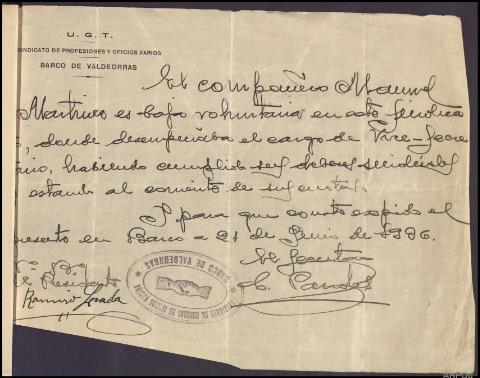 U. G. T.
SINDICATO DE PROFESIONES Y OFICIOS VARIOS
BARCO DE VALDEORRAS
El compañero Manuel
Martinez es baja voluntaria en este sindica
, donde desempeñaba el cargo de Vice-Secre
tario, habiendo cumplido sus deberes sindicales
estando al corriente de sus cuotas.
Y para que conste expido el
presente en Barco a 21 de Junio de 1936.
El Secretario
V.º B.º
El Presidente
C. Pardo
Ramiro Losada
BARCO DE VALDEORRAS